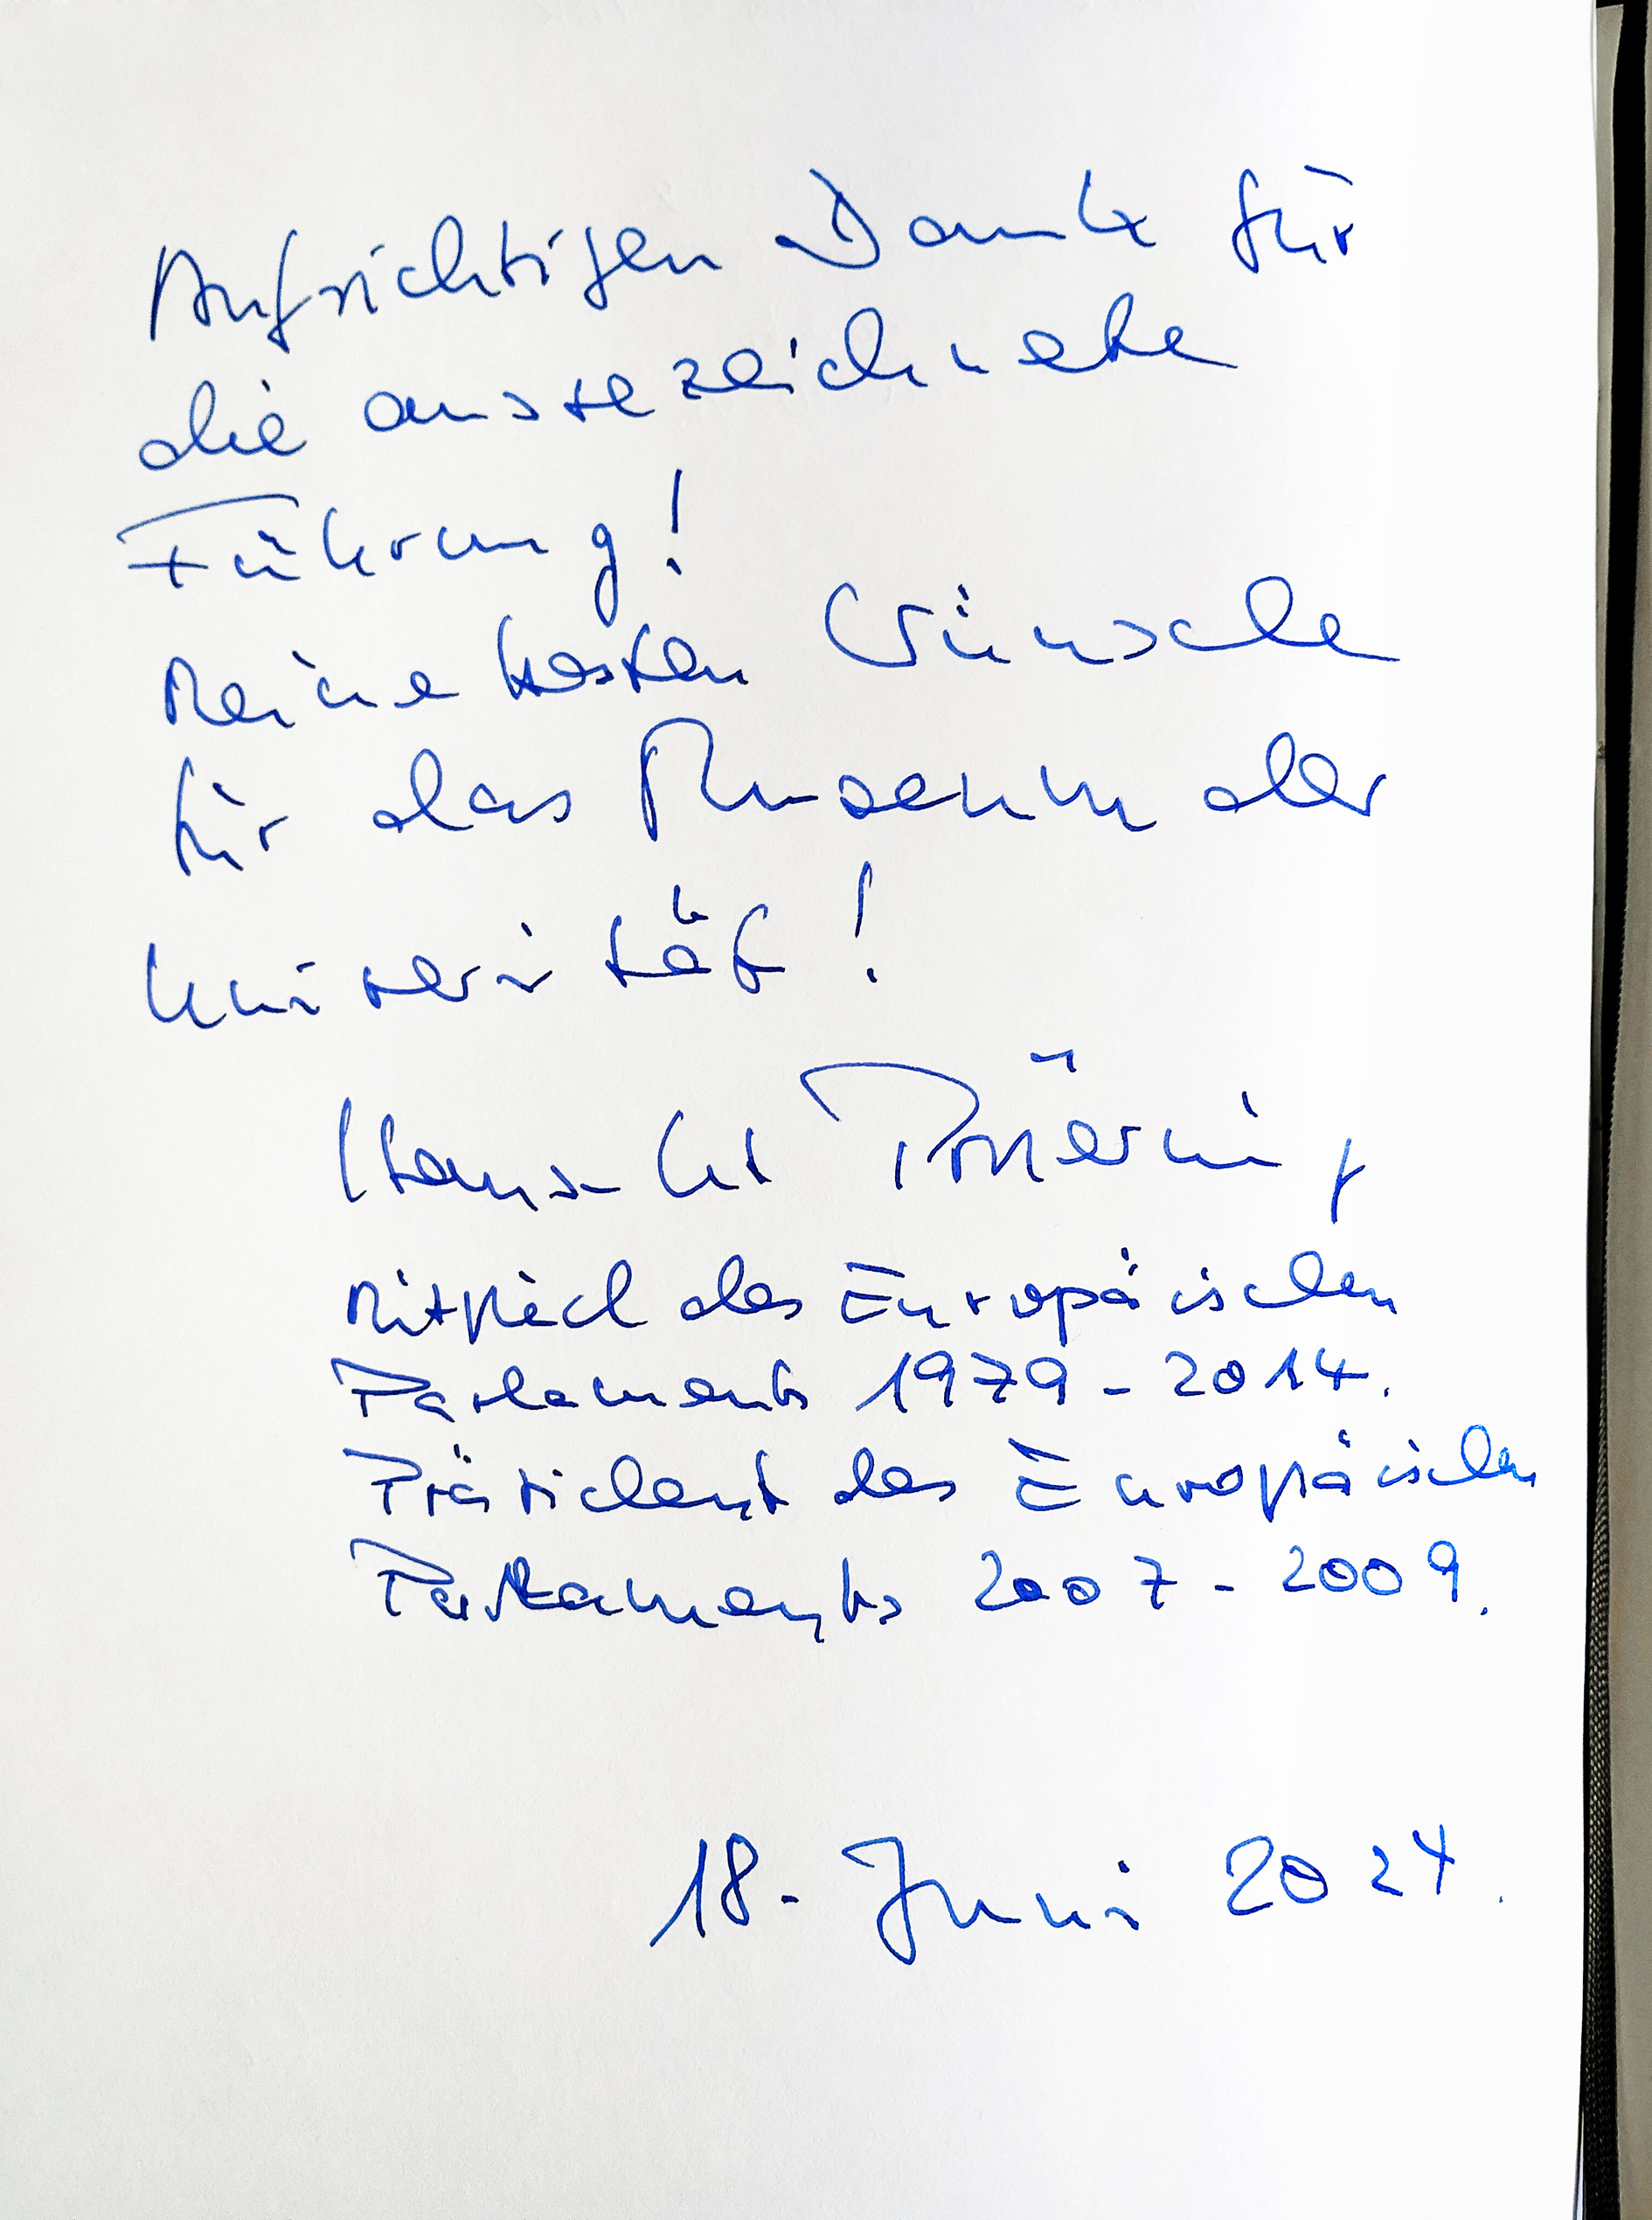 Aufrichtigen Dank für
die ausgezeichnete
Führung!
Meine besten Wünsche
für das Museum der
Universität!
Hans-Gert Pöttering,
Mitglied des Europäischen
Parlaments 1979-2014.
Präsident des Europäischen
Parlaments 2007-2009.
18. Juni 2024.